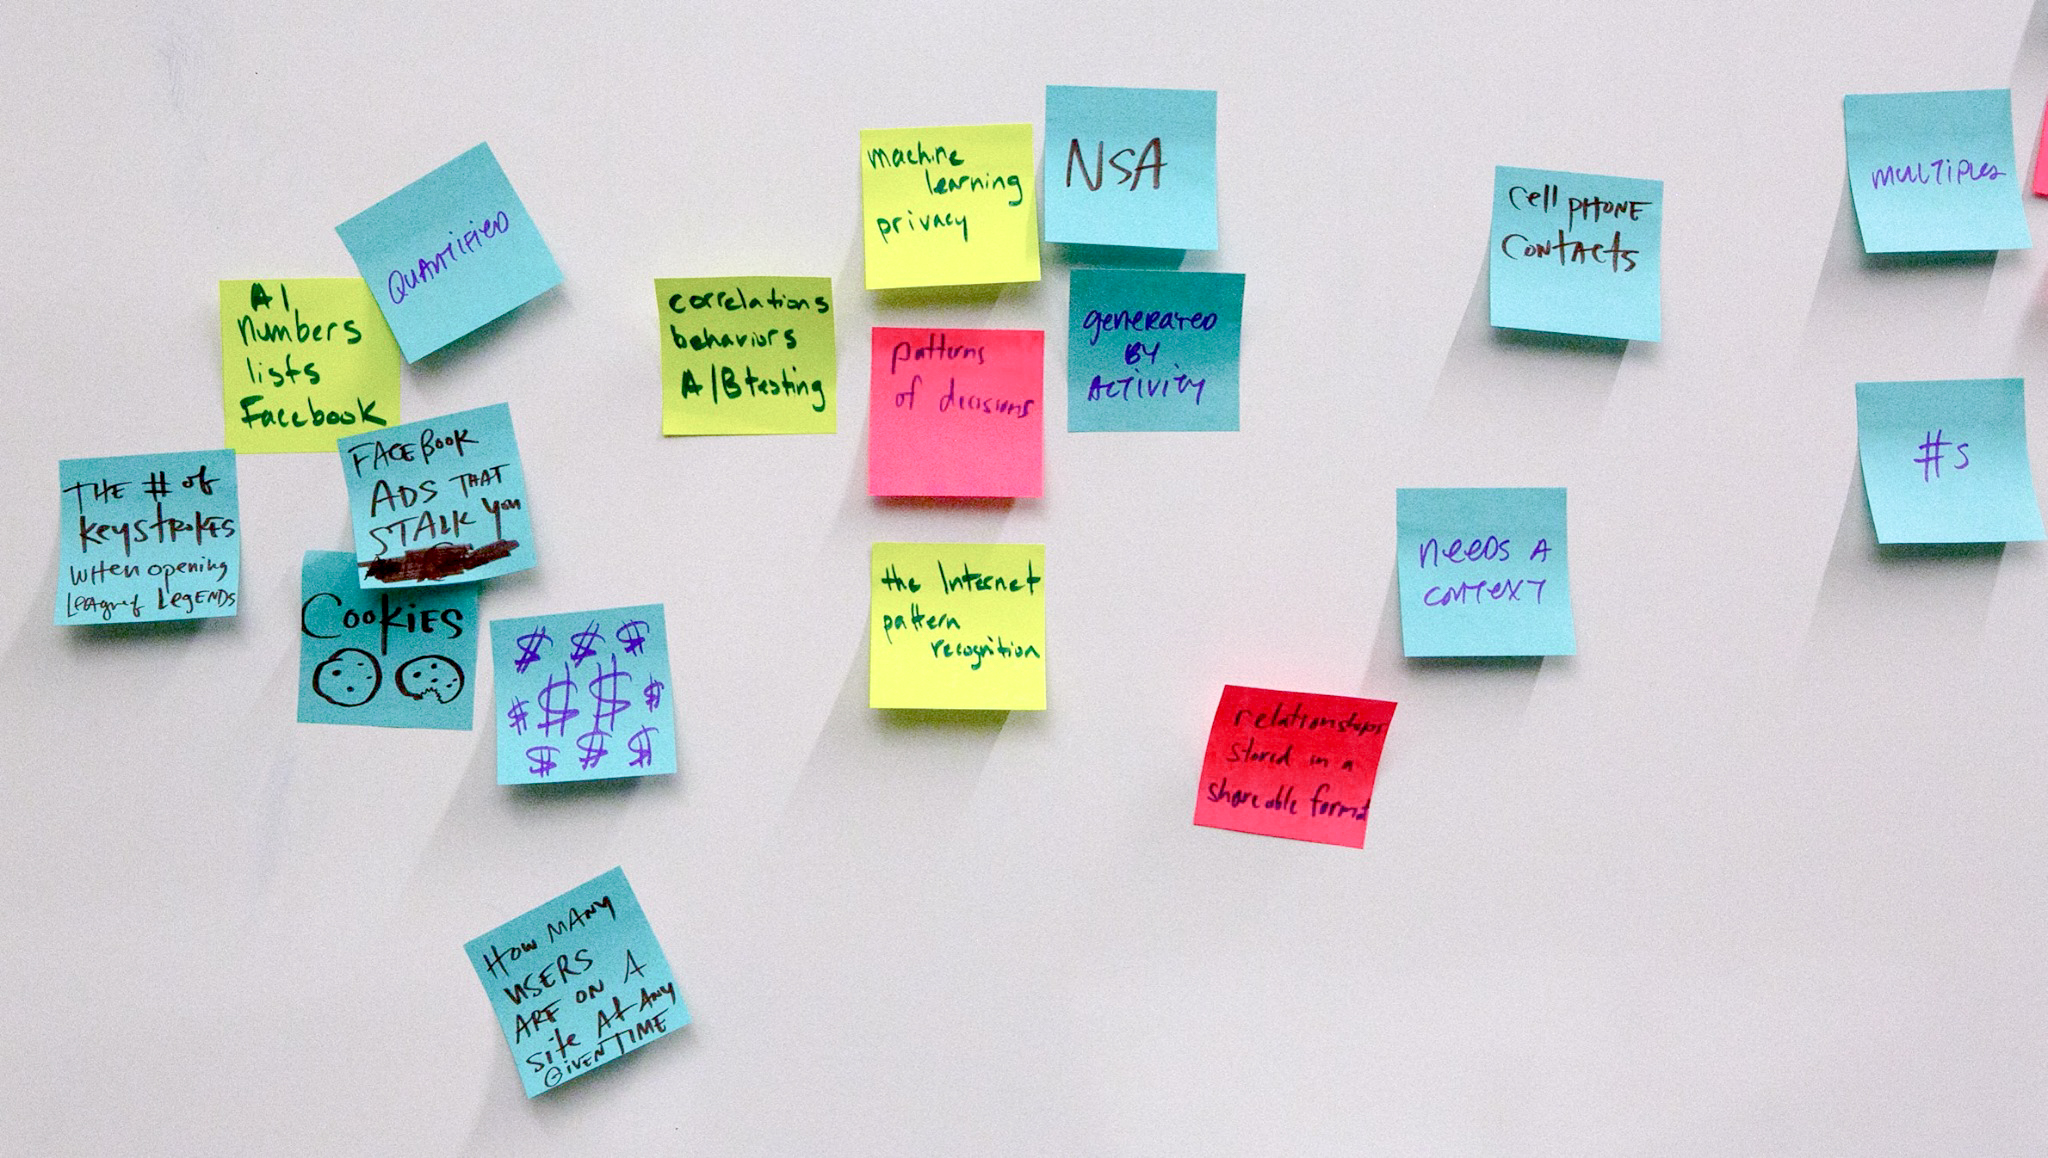 QUANTIFIED
AI
numbers
lists
Facebook
THE # of
keystrokes
when opening
League of Legends
FACEBOOK
ADS THAT
STALK You
Cookies
$ $ $
$ $ $ $
$ $ $
How MANY
USERS
ARE ON A
Site At Any
Given TIME
correlations
behaviors
A/B testing
machine
learning
privacy
NSA
patterns
of decisions
generated
BY
ACTIVITY
the Internet
pattern
recognition
cell PHONE
Contacts
needs A
context
relationships
stored in a
shareable format
multiples
#s